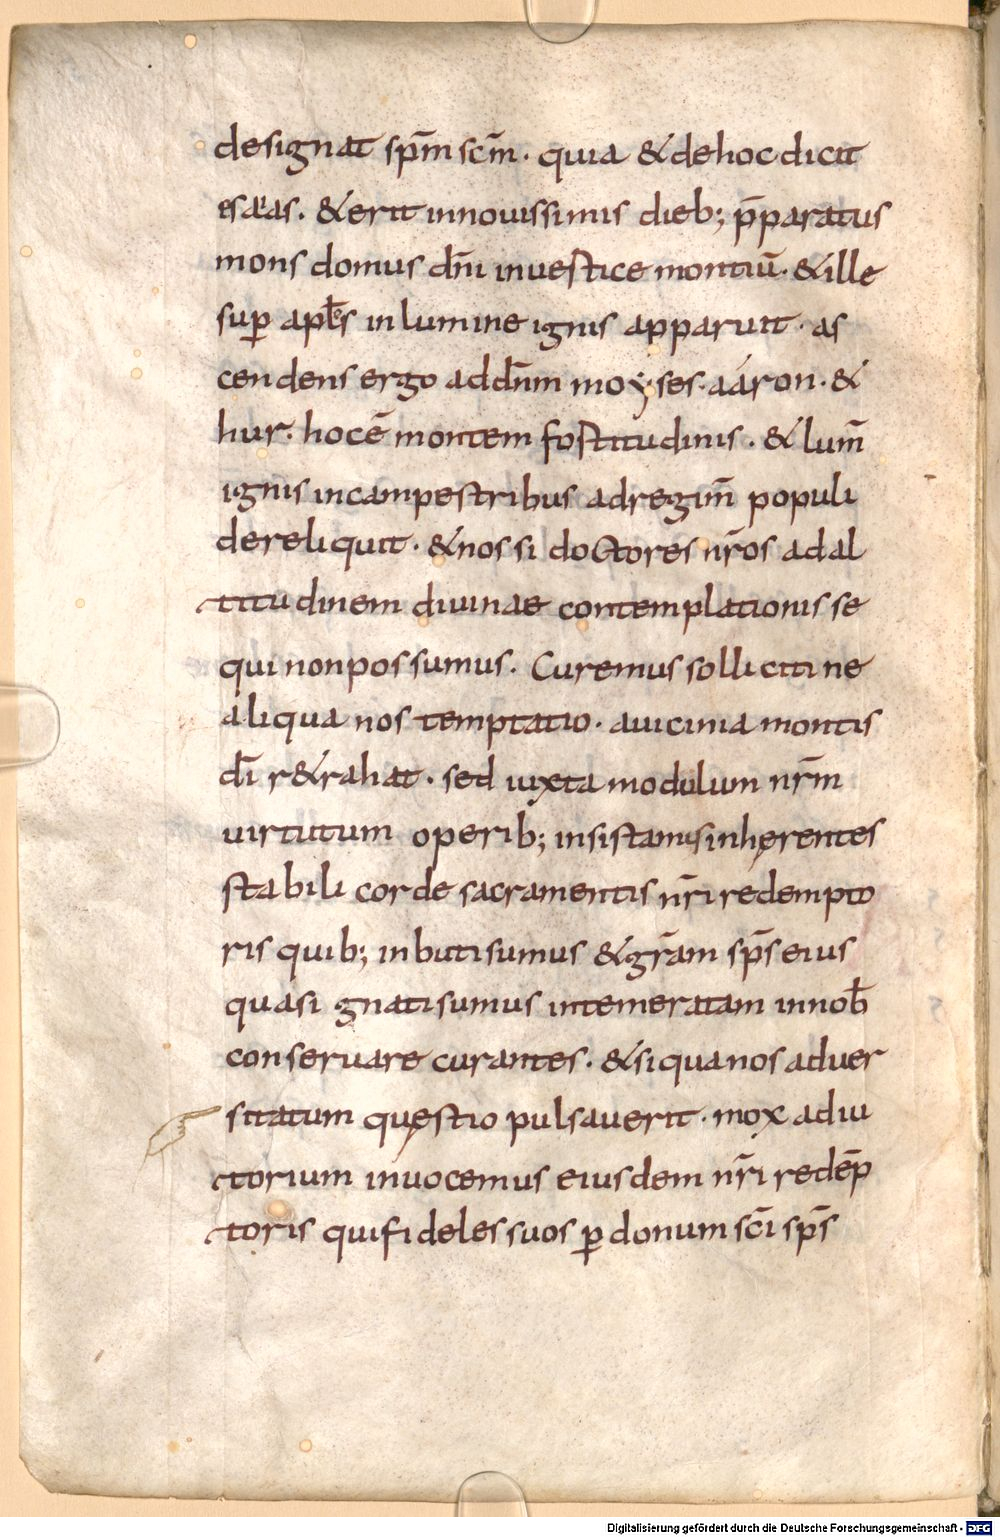 designat sp̄m sc̄m · quia & dehoc dicit
esaias . & erit innouissimis dieb; p̄paratus
mons domus dn̄i inuestice montiū · & ille
sup apłs in lumine ignis apparuit · as
cendens ergo addn̄m moyses · aaron · &
hur · hocē montem fostitudinis . & lum̄
ignis incampestribus adregim̄ populi
dereliquit · & nos si doctores nr̄os adal
titudinem diuinae contemplationis se
qui nonpossumus . Curemus solliciti ne
aliqua nos temptatio · auicinia montis
dī r&rahat . sed iuxta modulum nr̄m
uirtutum operib; insistamus inhęrentes
stabili corde sacramentis nr̄i redempto
ris quib; inbutisumus & gr̄am sp̄s eius
quasi gnatisumus intemeratam innob̄
conseruare curantes · & siqua nos aduer
sitatum quęstio pulsauerit · mox adiu
torium inuocemus eiusdem nr̄i redēp
toris quifideles suos p donum sc̄i sp̄s
Digitalisierung gefördert durch die Deutsche Forschungsgemeinschaft - DFG